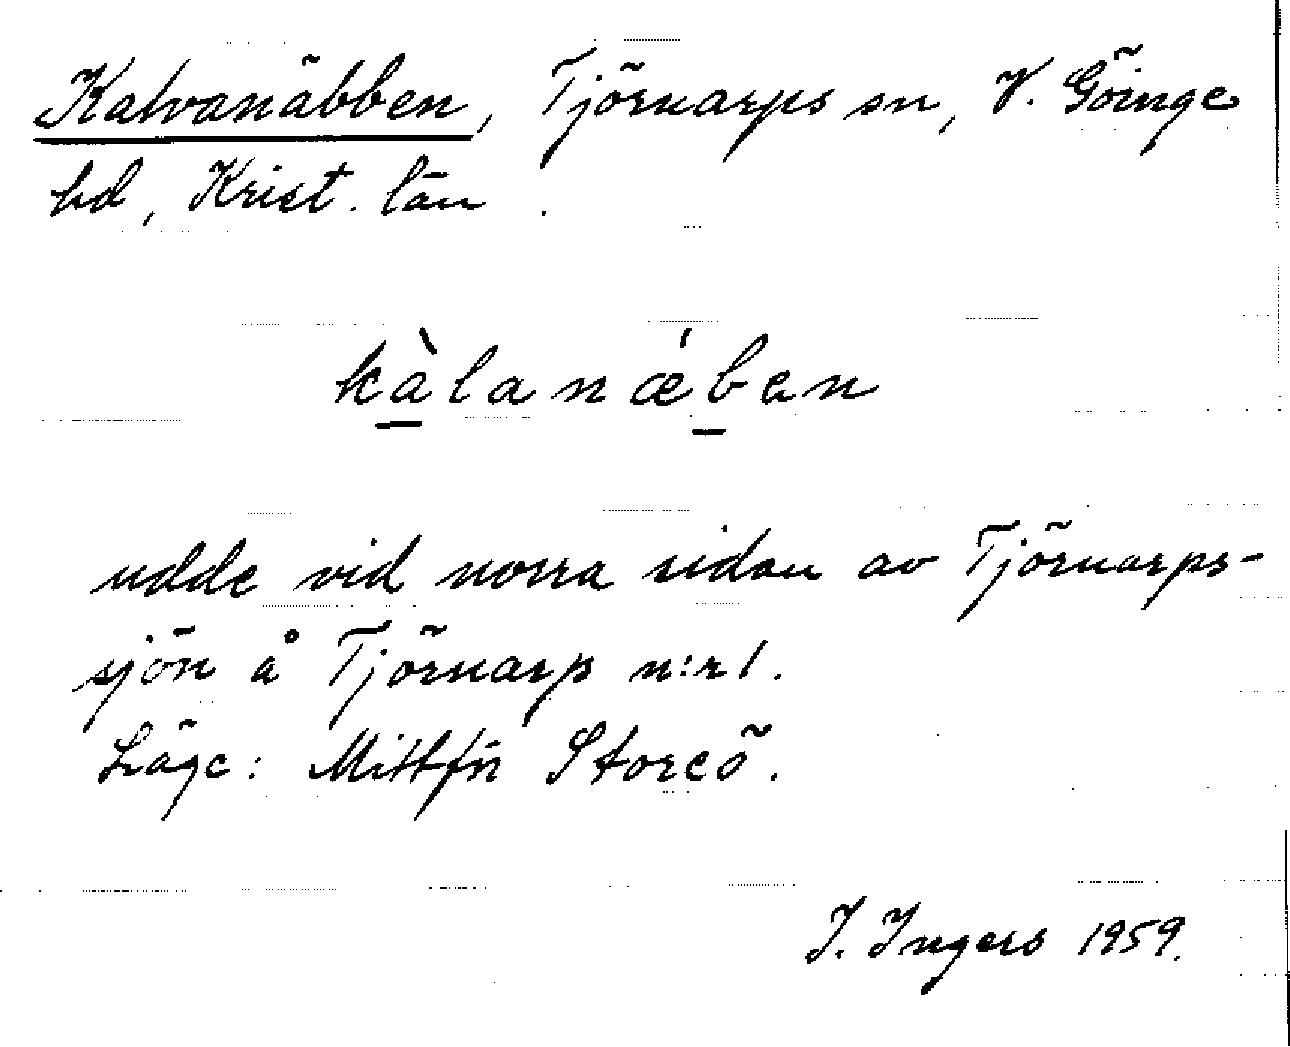 Kalvanäbben, Tjörnarps sn, V. Göinge
hd, Krist. län.
kàlanǽben
udde vid norra sidan av Tjörnarps-
sjön å Tjörnarp n:r 1.
Läge: Mittför Storeö.
I. Ingers 1959.